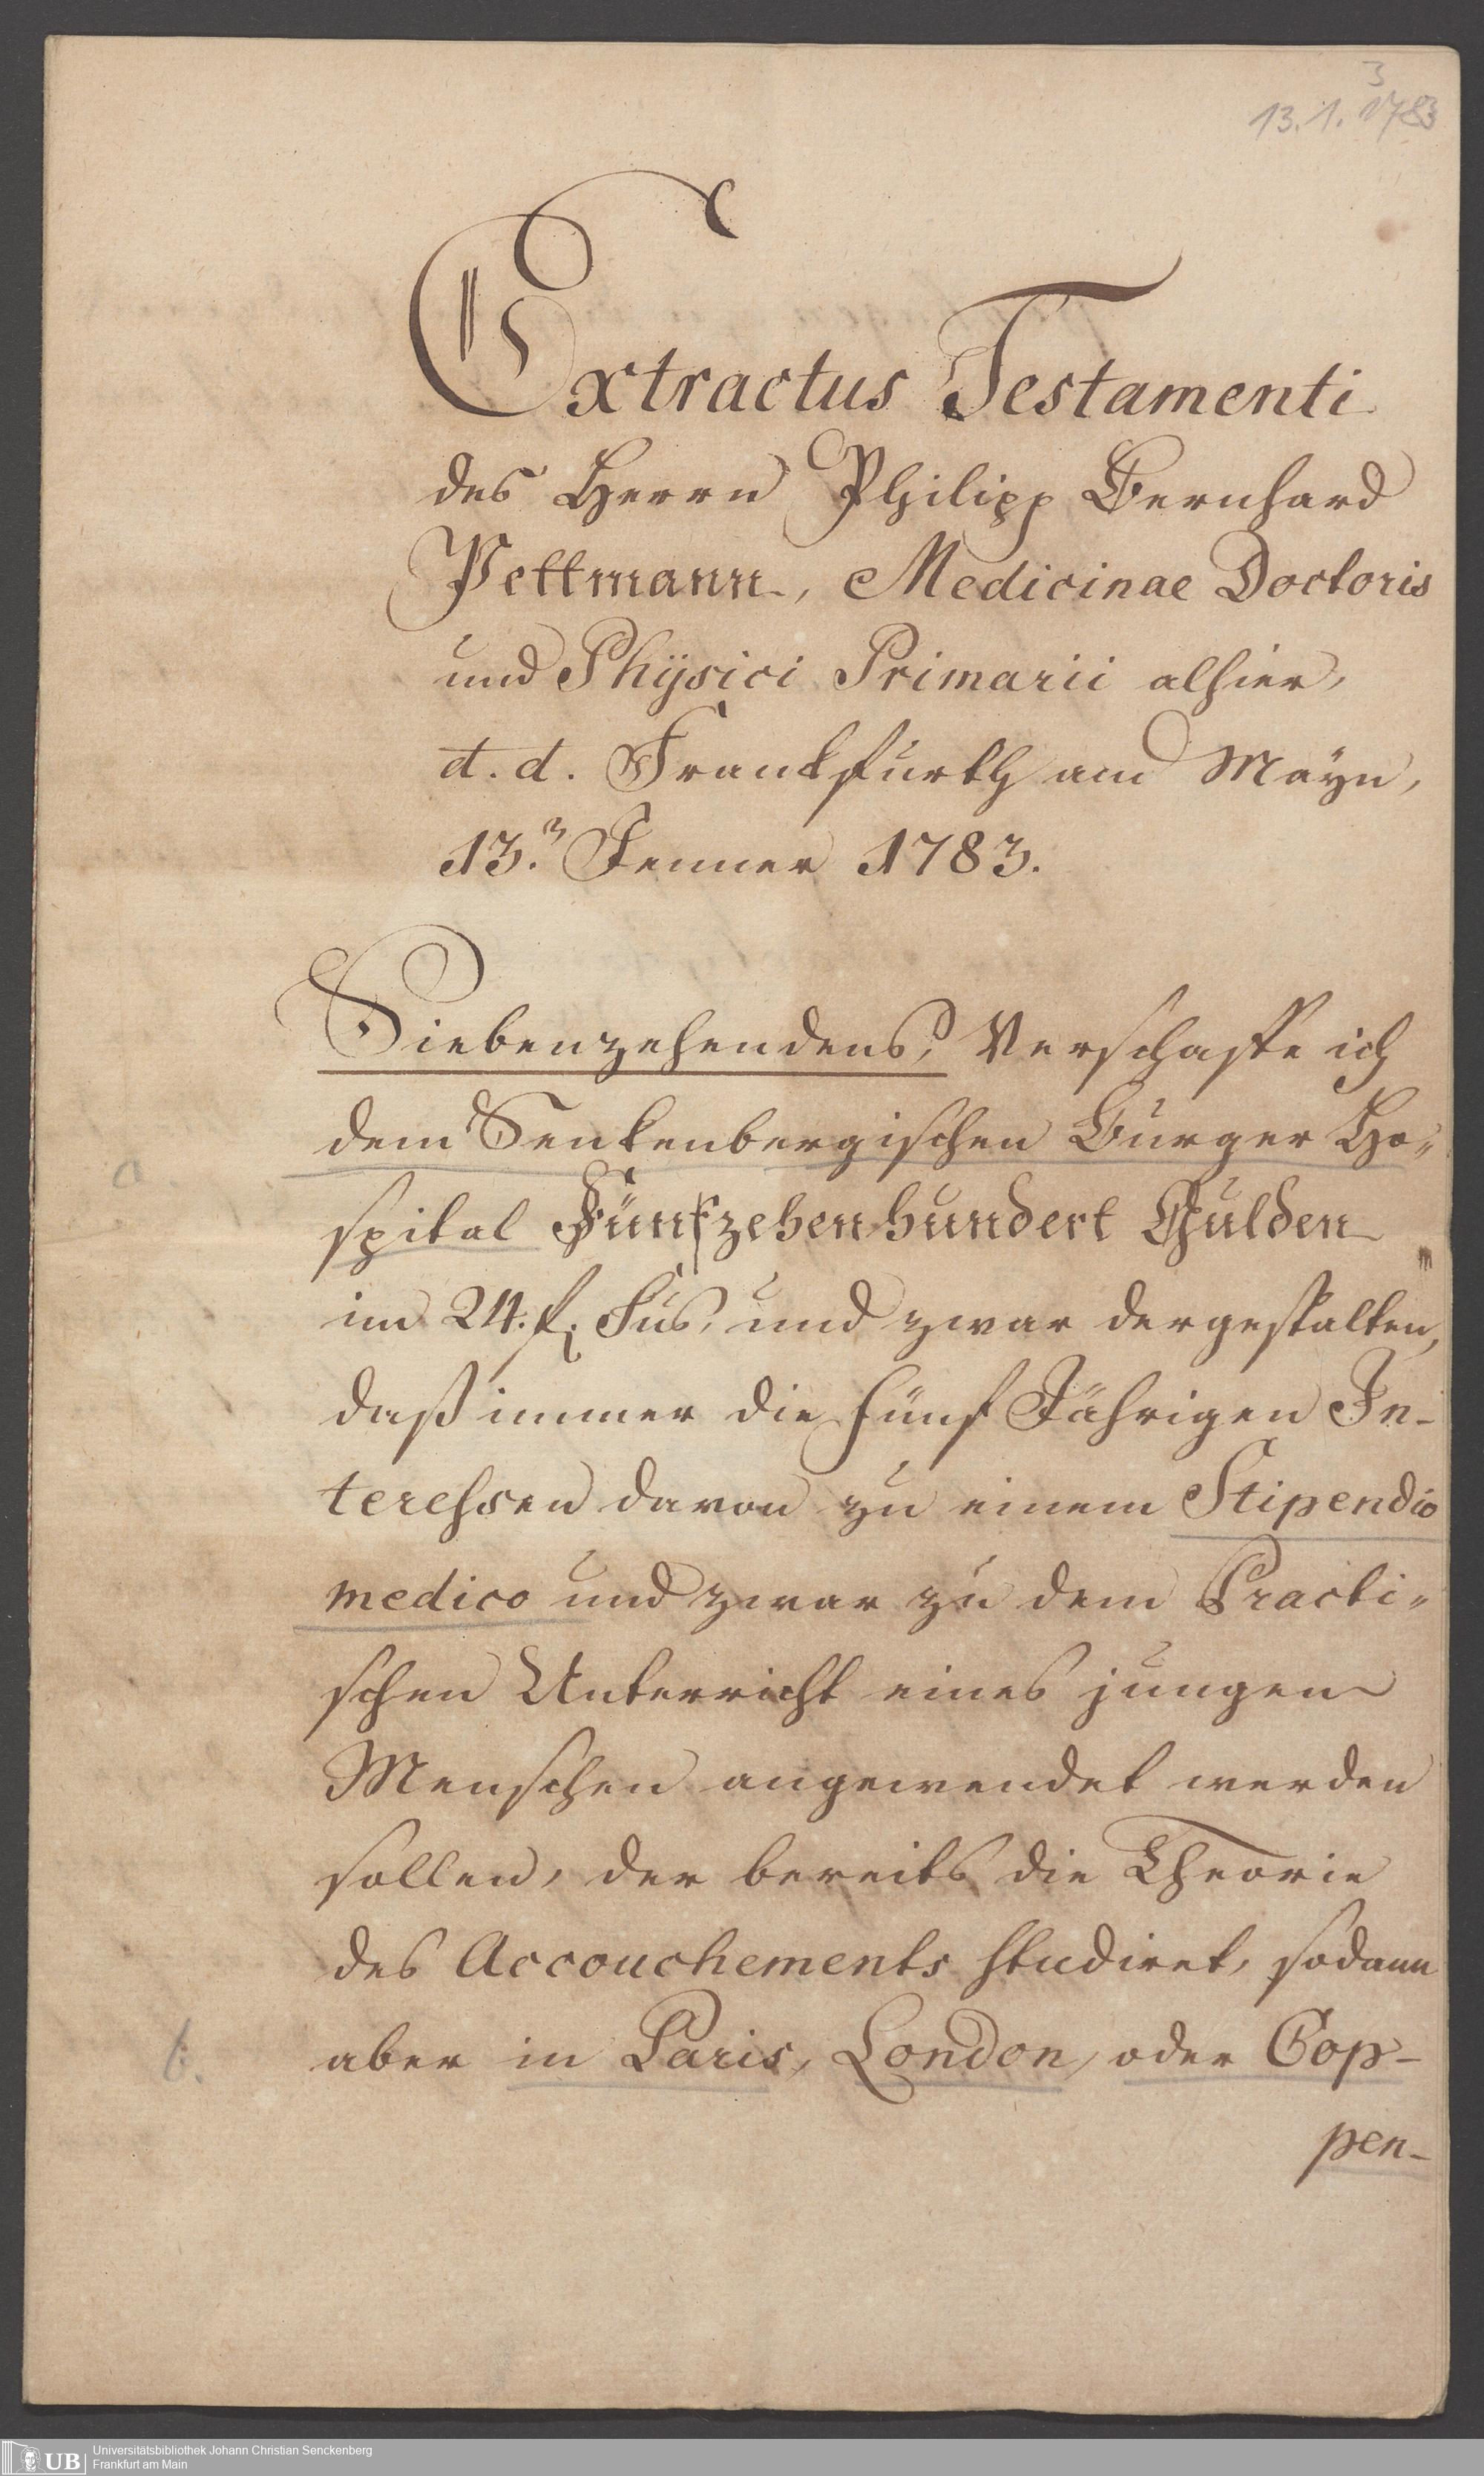 3
13.1.1783
Extractus Testamenti
des Herrn Philipp Bernhard
Pettmann, Medicinae Doctoris
und Physici Primarii alhier,
d. d. Franckfurth am Mayn,
13.n Jenner 1783.
Siebenzehendens, Verschaffe ich
dem Senkenbergischen Burger Ho-
a
spital Fünfzehenhundert Gulden
im 24. f. Fus, und zwar dergestalten,
daß immer die fünf Jährigen In-
teressen davon zu einem Stipendio
medico und zwar zu dem Practi-
schen Unterricht eines jungen
Menschen angewendet werden
sollen, der bereits die Theorie
des Accouchements studiret, sodann
b. aber in Paris, London, oder Cop-
pen-
UB
Universitätsbibliothek Johann Christian Senckenberg
Frankfurt am Main